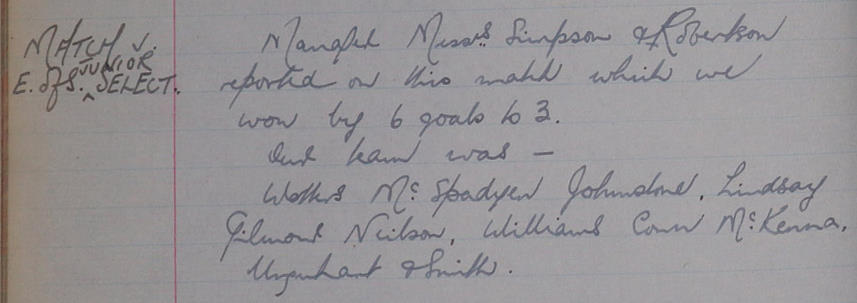 MATCH v.
E. of S. JUNIOR SELECT.
Manager Messrs. Simpson & Robertson
reported on this match which we
won by 6 goals to 3.
Our team was —
Watters McSpadyen Johnstone, Lindsay
Gilmour Neilson, Williams Conn McKenna,
Urquhart & Smith.